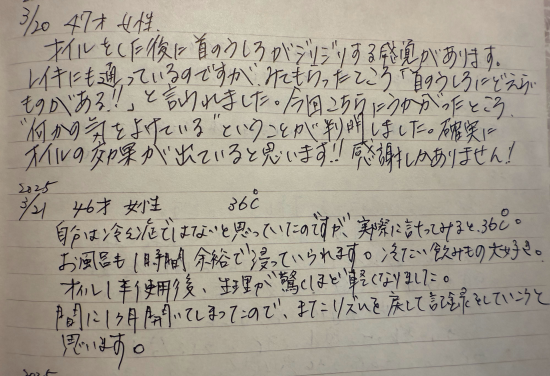 3/20 47才 女性
オイルをした後に首のうしろがジリジリする感覚があります。
レイキにも通っているのですが、みてもらったところ「首のうしろにどえらい
ものがある!!」と言われました。今回こちらにうかがったところ、
"何かの気をよけている"ということが判明しました。確実に
オイルの効果が出ていると思います!! 感謝しかありません!
2025
3/21 46才 女性 36℃
自分は冷え症ではないと思っていたのですが、実際に計ってみると、36℃。
お風呂も1時間余裕で浸っていられます。冷たい飲みもの大好き。
オイル1年使用後、生理が驚くほど軽くなりました。
間に1ヶ月開いてしまったので、またリズムを戻して記録をしていこうと
思います。
2025